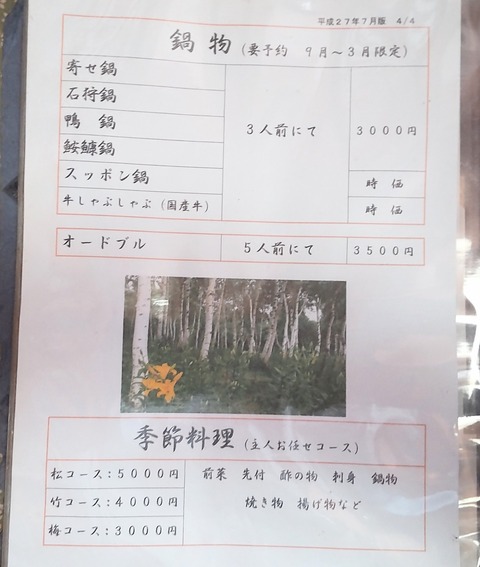 平成２７年７月版　４/４
鍋 物（要予約　９月～３月限定）
寄せ鍋
石狩鍋
鴨　鍋
鮟鱇鍋
スッポン鍋
牛しゃぶしゃぶ（国産牛）
３人前にて
３０００円
時 価
時 価
オードブル　５人前にて　３５００円
季節料理（主人お任せコース）
松コース：５０００円
竹コース：４０００円
梅コース：３０００円
前菜　先付　酢の物　刺身　鍋物
焼き物　揚げ物など